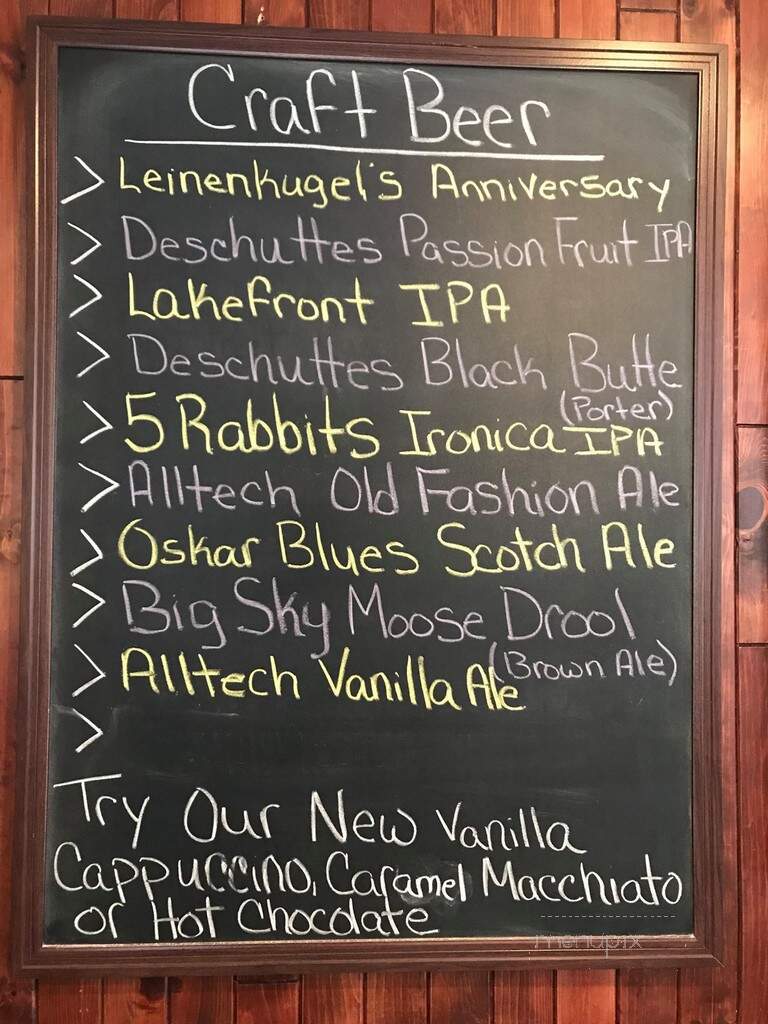 Craft Beer
> Leinenkugel's Anniversary
> Deschuttes Passion Fruit IPA
> Lakefront IPA
> Deschuttes Black Butte
(Porter)
> 5 Rabbits Ironica IPA
> Alltech Old Fashion Ale
> Oskar Blues Scotch Ale
> Big Sky Moose Drool
(Brown Ale)
> Alltech Vanilla Ale
>
Try Our New Vanilla
Cappuccino, Caramel Macchiato
or Hot Chocolate
menupix